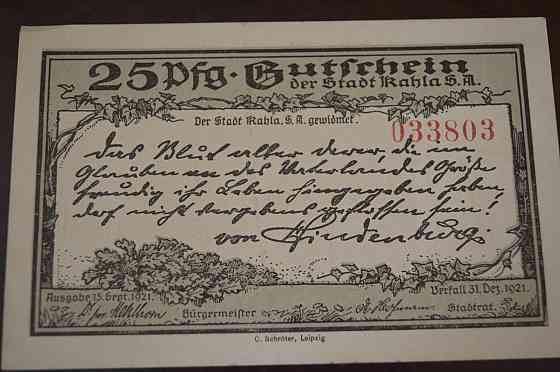 25 Pfg. Gutschein
der Stadt Kahla S.A.
Der Stadt Kahla S.A. gewidmet.
033803
Das Blut aller derer, die im
Glauben an des Vaterlandes Größe
freudig ihr Leben hingegeben haben,
darf nicht vergebens geflossen sein!
von Hindenburg
Ausgabe 15. Sept. 1921.
Verfall 31. Dez. 1921.
Bürgermeister
Stadtrat
C. Schröter, Leipzig